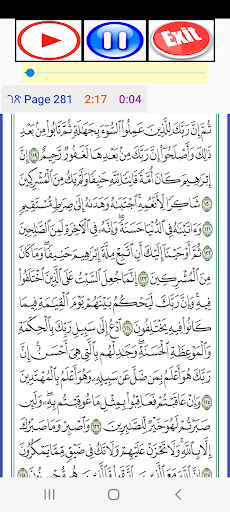 Exit
Page 281 2:17 0:04
ثُمَّ إِنَّ رَبَّكَ لِلَّذِينَ عَمِلُوا۟ ٱلسُّوٓءَ بِجَهَٰلَةٍ ثُمَّ تَابُوا۟ مِنۢ بَعْدِ
ذَٰلِكَ وَأَصْلَحُوٓا۟ إِنَّ رَبَّكَ مِنۢ بَعْدِهَا لَغَفُورٌ رَّحِيمٌ ١١٩ إِنَّ
إِبْرَٰهِيمَ كَانَ أُمَّةً قَانِتًا لِّلَّهِ حَنِيفًا وَلَمْ يَكُ مِنَ ٱلْمُشْرِكِينَ
١٢٠ شَاكِرًا لِّأَنْعُمِهِ ٱجْتَبَىٰهُ وَهَدَىٰهُ إِلَىٰ صِرَٰطٍ مُّسْتَقِيمٍ
١٢١ وَءَاتَيْنَٰهُ فِى ٱلدُّنْيَا حَسَنَةً وَإِنَّهُۥ فِى ٱلْءَاخِرَةِ لَمِنَ ٱلصَّٰلِحِينَ
١٢٢ ثُمَّ أَوْحَيْنَآ إِلَيْكَ أَنِ ٱتَّبِعْ مِلَّةَ إِبْرَٰهِيمَ حَنِيفًا وَمَا كَانَ
مِنَ ٱلْمُشْرِكِينَ ١٢٣ إِنَّمَا جُعِلَ ٱلسَّبْتُ عَلَى ٱلَّذِينَ ٱخْتَلَفُوا۟
فِيهِ وَإِنَّ رَبَّكَ لَيَحْكُمُ بَيْنَهُمْ يَوْمَ ٱلْقِيَٰمَةِ فِيمَا
كَانُوا۟ فِيهِ يَخْتَلِفُونَ ١٢٤ ٱدْعُ إِلَىٰ سَبِيلِ رَبِّكَ بِٱلْحِكْمَةِ
وَٱلْمَوْعِظَةِ ٱلْحَسَنَةِ وَجَٰدِلْهُم بِٱلَّتِى هِىَ أَحْسَنُ إِنَّ
رَبَّكَ هُوَ أَعْلَمُ بِمَن ضَلَّ عَن سَبِيلِهِۦ وَهُوَ أَعْلَمُ بِٱلْمُهْتَدِينَ
١٢٥ وَإِنْ عَاقَبْتُمْ فَعَاقِبُوا۟ بِمِثْلِ مَا عُوقِبْتُم بِهِۦ وَلَئِن
صَبَرْتُمْ لَهُوَ خَيْرٌ لِّلصَّٰبِرِينَ ١٢٦ وَٱصْبِرْ وَمَا صَبْرُكَ
إِلَّا بِٱللَّهِ وَلَا تَحْزَنْ عَلَيْهِمْ وَلَا تَكُ فِى ضَيْقٍ مِّمَّا يَمْكُرُونَ
١٢٧ إِنَّ ٱللَّهَ مَعَ ٱلَّذِينَ ٱتَّقَوا۟ وَّٱلَّذِينَ هُم مُّحْسِنُونَ